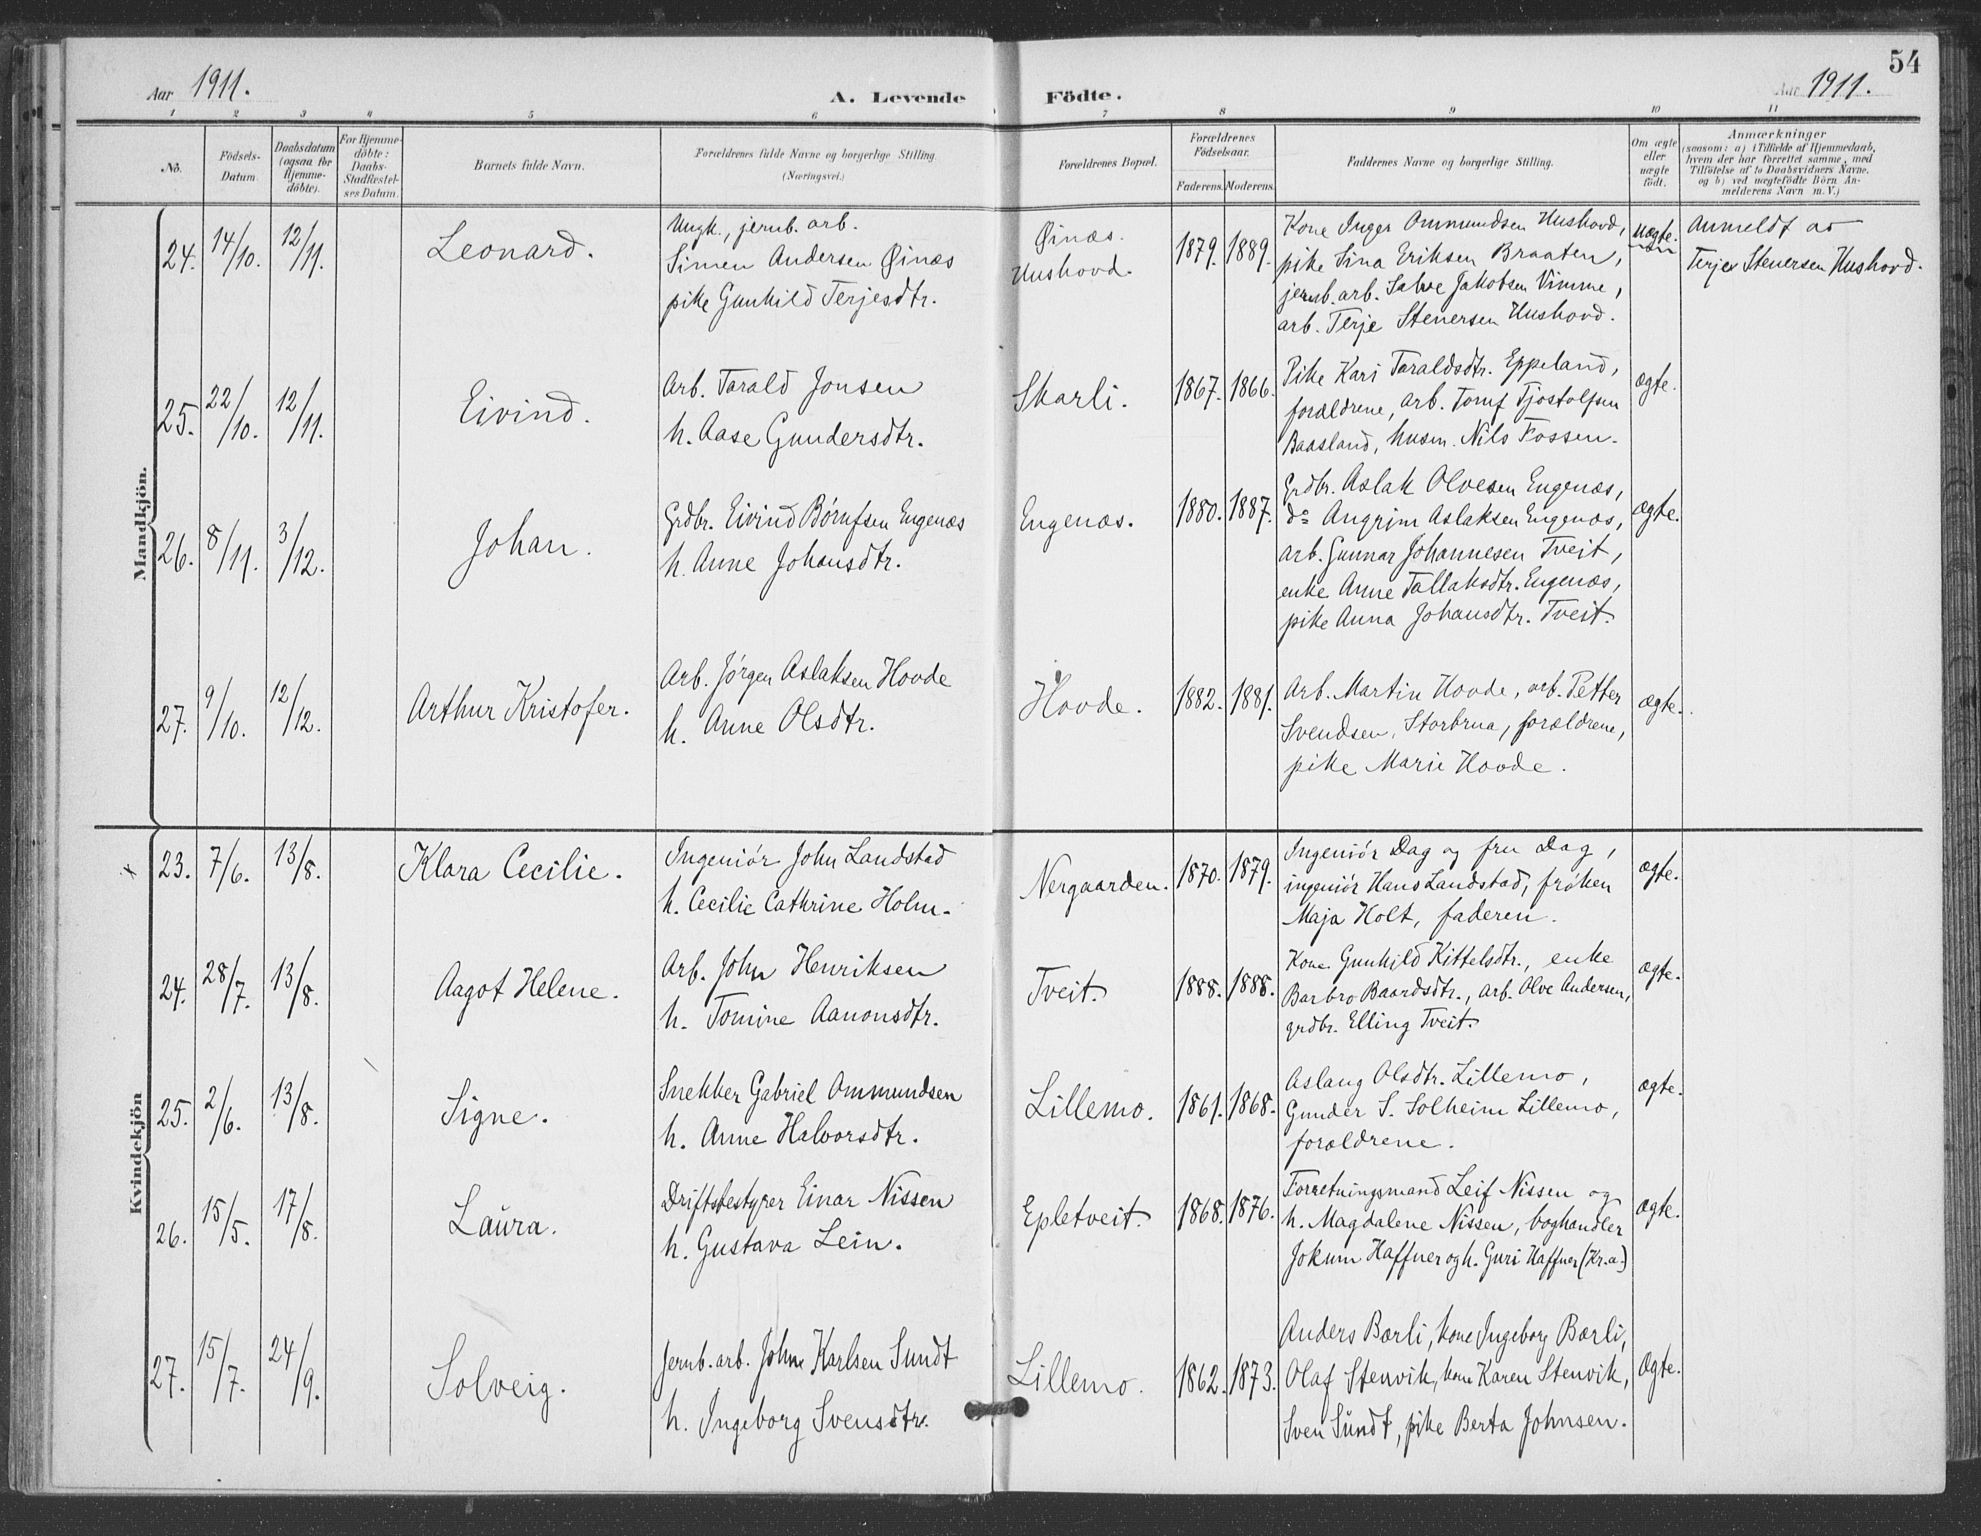 54
Aar 1911. A. Levende Födte. Aar 1911.
1 2 3 4 5 6 7 8 9 10 11
No.
Födsels-
Datum
Daabsdatum
(ogsaa for
Hjemme-
döbte).
For Hjemme-
döbte:
Daabs-
Stadfæstel-
ses Datum.
Barnets fulde Navn.
Forældrenes fulde Navne og borgerlige Stilling.
(Næringsvei.)
Forældrenes Bopæl.
Forældrenes
Födselsaar.
Faderens. Moderens.
Faddernes Navne og borgerlige Stilling.
Om ægte
eller
uægte
født.
Anmærkninger
(saasom: a) i Tilfælde af Hjemmedaab,
hvem der har forrettet samme, med
Tilföielse af to Daabsvidners Navne,
og b) ved uægtefödte Börn An-
melderens Navn m. V.)
Mandkjön.
24. 14/10. 12/11. Leonard.
Ungk., jernb. arb.
Simen Andersen Øinæs
pike Gunhild Terjesdtr.
Øinæs.
Hushovd.
1879. 1889.
Kone Inger Ommundsen Hushovd,
pike Sina Eriksen Braaten,
jernb. arb. Salve Jakobsen Vimme,
arb. Terje Stenersen Hushovd.
uægte.
Anmeldt av
Terje Stenersen Hushovd.
25. 22/10. 12/11. Eivind.
Arb. Tarald Jonsen
h. Aase Gundersdtr.
Skarli. 1867. 1866.
Pike Kari Taraldsdtr. Eppeland,
forældrene, arb. Tomf Tjostolfsen
Baasland, husm. Nils Fossen.
ægte.
26. 8/11. 3/12. Johan.
Grdbr. Eivind Børufsen Engenæs
h. Anne Johansdtr.
Engenæs. 1880. 1887.
Grdbr. Aslak Olvesen Engenæs,
do Angrim Aslaksen Engenæs,
arb. Gunnar Johannesen Tveit,
enke Anne Tallaksdtr. Engenæs,
pike Anna Johansdtr. Tveit.
ægte.
27. 9/10. 12/12. Arthur Kristofer.
Arb. Jörgen Aslaksen Hovde
h. Anne Olsdtr.
Hovde. 1882. 1881.
Arb. Martin Hovde, arb. Petter
Svendsen, Storbrua, forældrene,
pike Marie Hovde.
ægte.
Kvindekjön
23. 7/6. 13/8. Klara Cecilie.
Ingeniör John Landstad
h. Cecilie Cathrine Holm.
Nergaarden. 1870. 1879.
Ingeniör Dag og fru Dag,
ingeniör Hans Landstad, fröken
Maja Holt, faderen.
ægte.
24. 28/7. 13/8. Aagot Helene.
Arb. John Henriksen
h. Tomine Aanonsdtr.
Tveit. 1888. 1888.
Kone Gunhild Kittelsdtr., enke
Barbro Baardsdtr., arb. Olve Andersen,
grdbr. Elling Tveit.
ægte.
25. 2/6. 13/8. Signe.
Snekker Gabriel Ommundsen
h. Anne Halvorsdtr.
Lillemo. 1861. 1868.
Aslaug Olsdtr. Lillemo,
Gunder S. Solheim Lillemo,
forældrene.
ægte.
26. 15/5. 17/8. Laura.
Driftsbestyrer Einar Nissen
h. Gustava Lein.
Epletveit. 1868. 1876.
Forretningsmand Leif Nissen og
h. Magdalene Nissen, boghandler
Jokum Haffner og h. Guri Haffner (Kr.a.)
ægte.
27. 15/7. 24/9. Solveig.
Jernb. arb. John Karlsen Sundt
h. Ingeborg Svensdtr.
Lillemo. 1862. 1873.
Anders Bærli, kone Ingeborg Bærli,
Olaf Stenvik, kone Karen Stenvik,
Sven Sundt, pike Berta Johnsen.
Ægte.